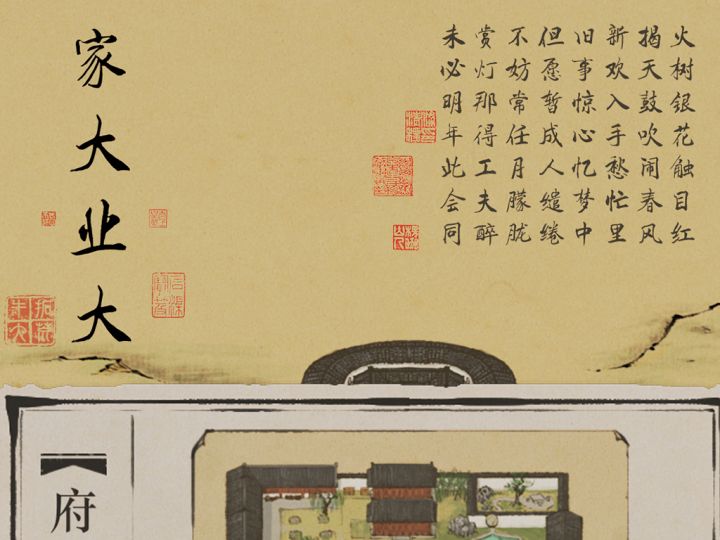 火树银花触目红
揭天鼓吹闹春风
新欢入手愁忙里
旧事惊心忆梦中
但愿暂成人缱绻
不妨常任月朦胧
赏灯那得工夫醉
未必明年此会同
家大业大
府